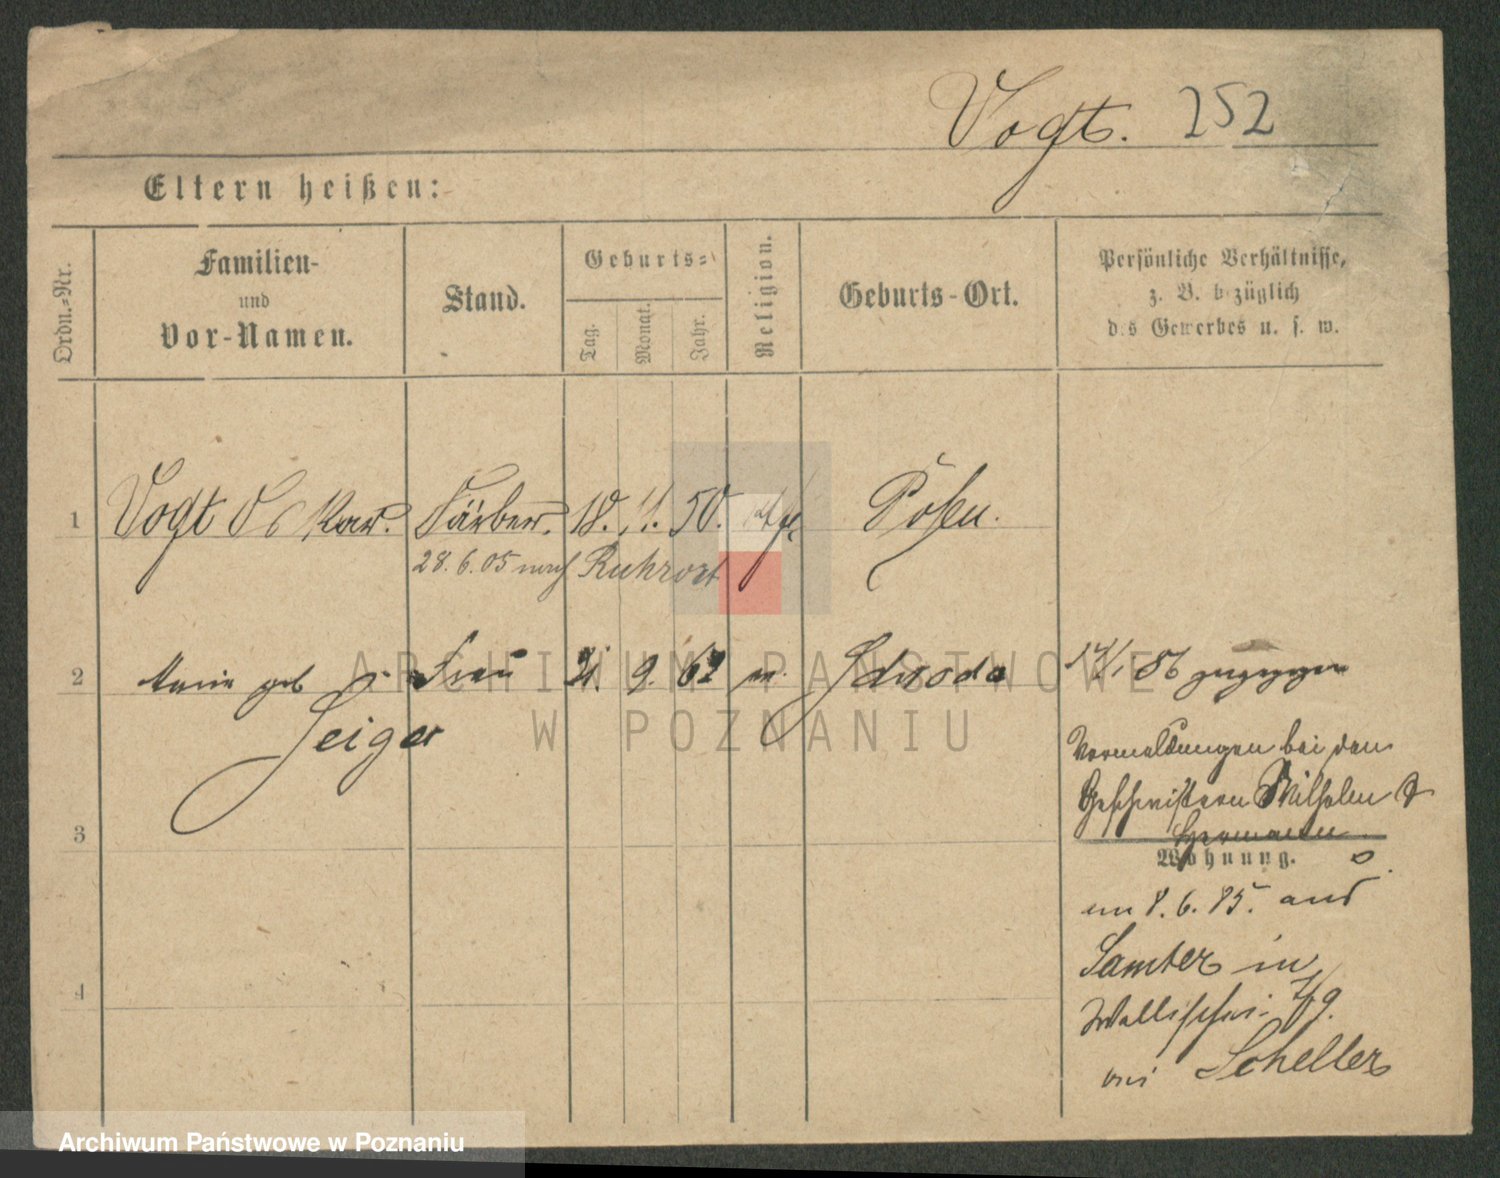 Vogt. 252
Eltern heißen:
Ordn.=Nr.
Familien-
und
Vor-Namen.
Stand.
Geburts=
Tag.
Monat.
Jahr.
Religion.
Geburts-Ort.
Persönliche Verhältnisse,
z. B. bezüglich
des Gewerbes u. s. w.
1 Vogt Oskar. Färber. 18. 11. 50. Posen.
28.6.05 nach Ruhrort
2 Marie geb Frau 21. 9. 62 Schroda
Geiger
17/1. 86 zugezogen
Vermeldungen bei den
Geschwistern Wilhelm &
Hermann
3
Wohnung.
8.6.85. aus
Samter in
4
Wallischei 7/9.
bei Scheller
ARCHIWUM PAŃSTWOWE
W POZNANIU
Archiwum Państwowe w Poznaniu